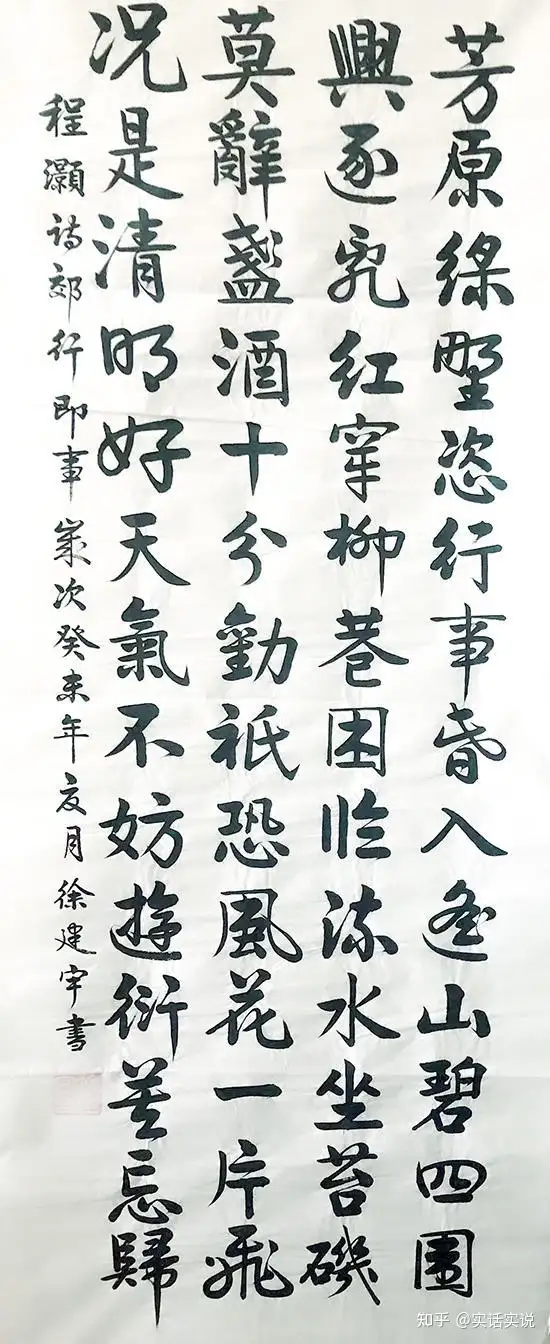 芳原綠野恣行事旾入遥山碧四圍
興逐乱紅穿柳巷困临流水坐苔磯
莫辭盞酒十分勸祇恐風花一片飛
况是清明好天氣不妨遊衍莫忘歸
程灝詩郊行即事歲次癸未年夏月徐建書
知乎 @实话实说